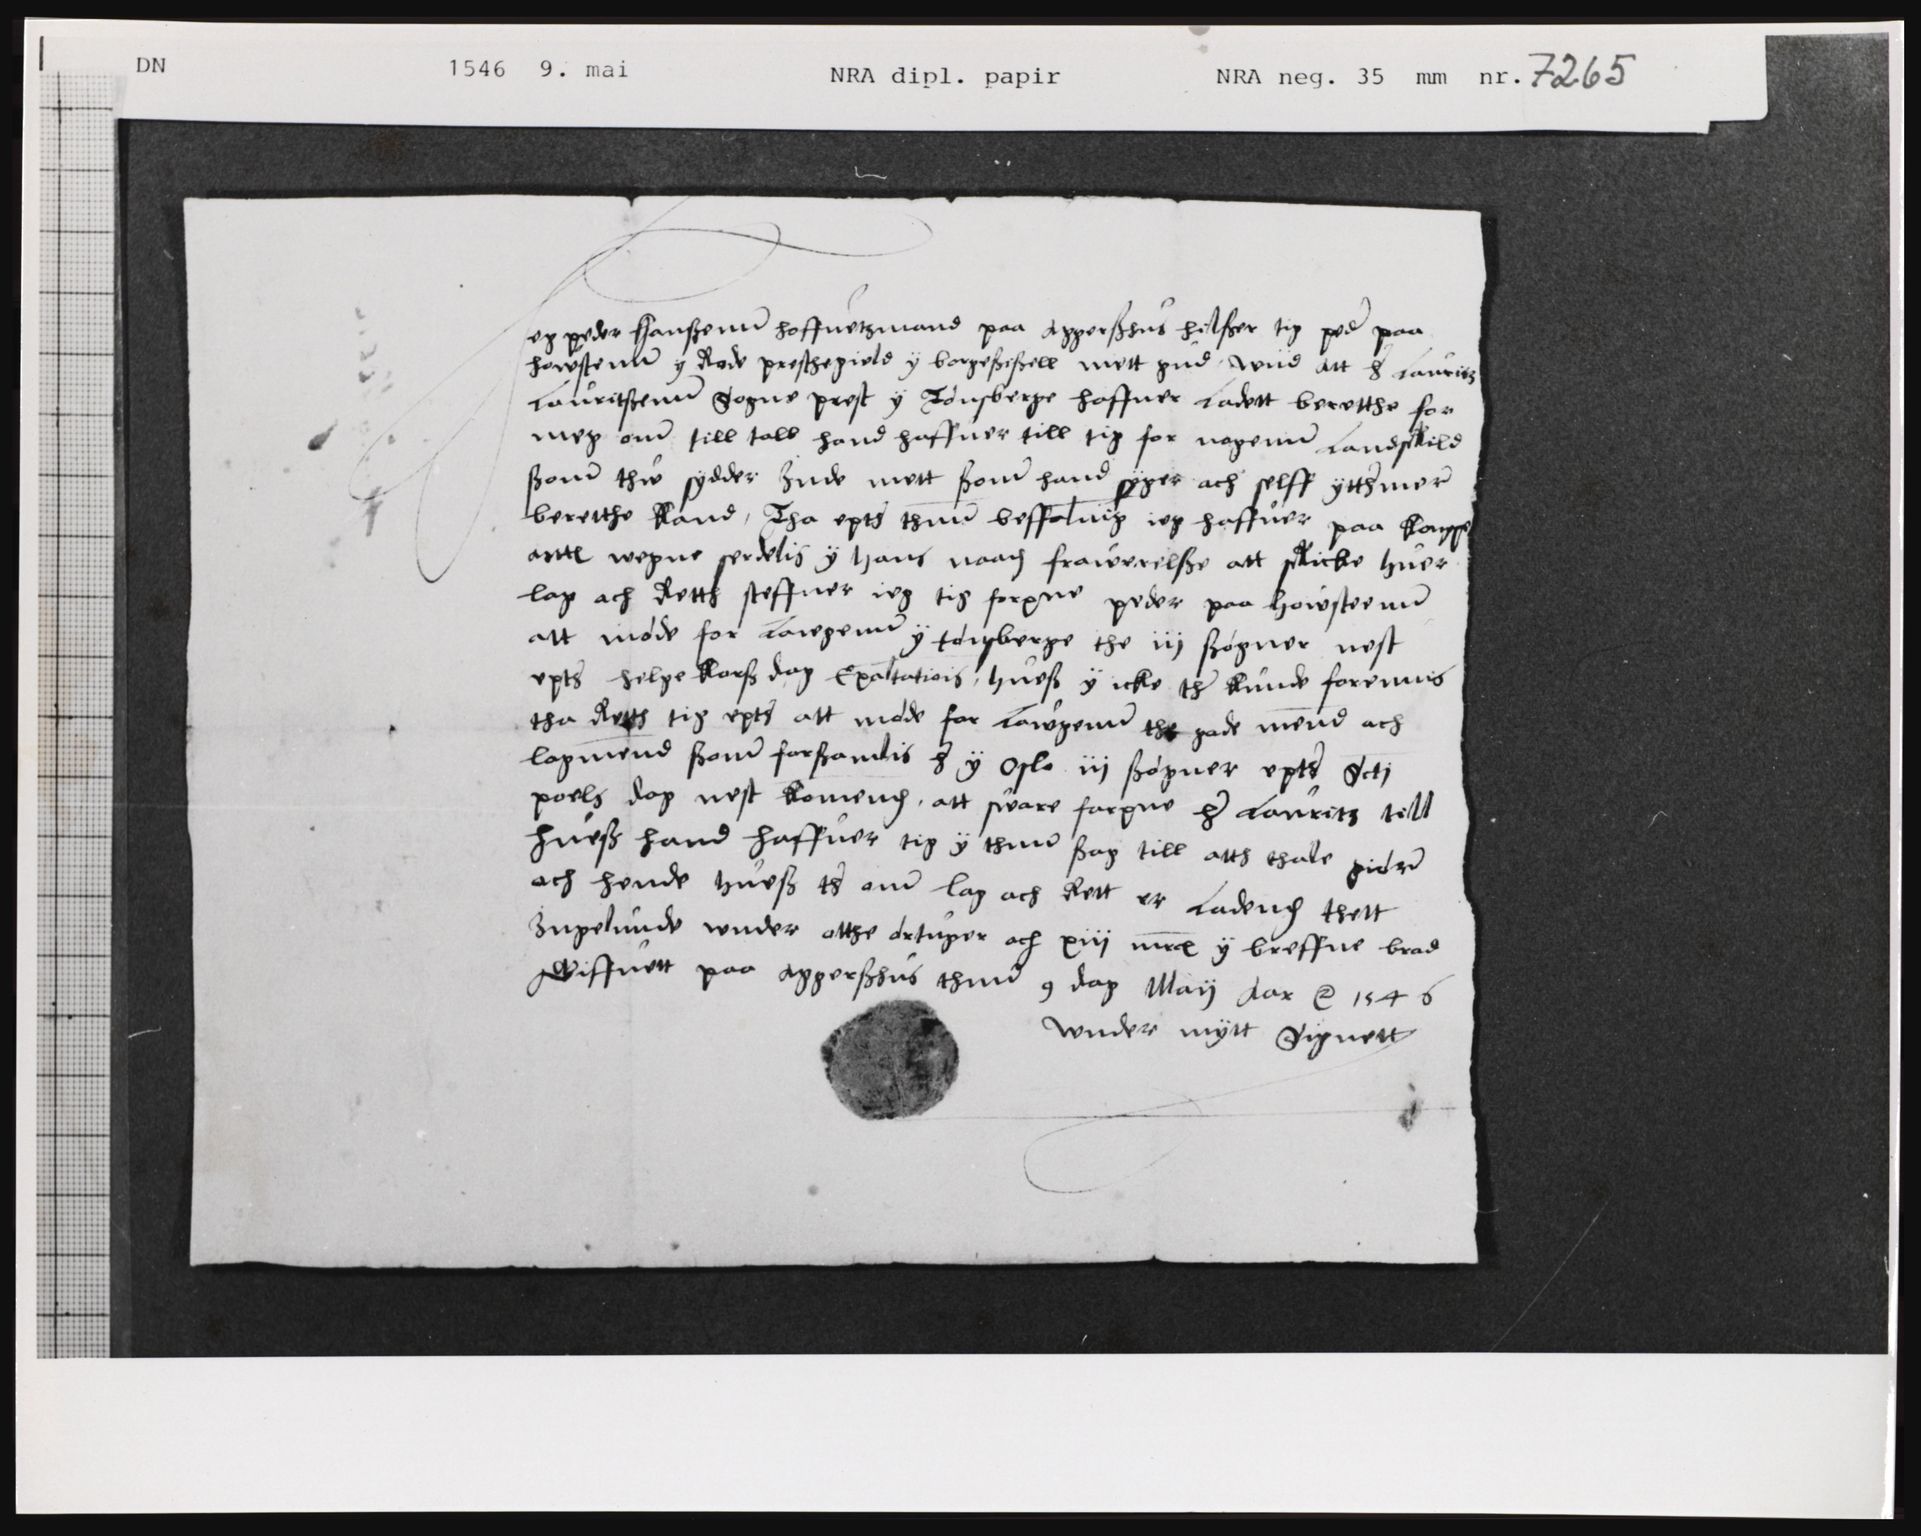 DN 1546 9. mai NRA dipl. papir NRA neg. 35 mm nr. 7265
Jeg peder Hanßenn hoffuetzmand paa Aggerßhus helßer tig peder paa
howstenn y Rode prestegield y borgeßißell mett gud. wiid att her Lauritz
Lauritßenn Sogne prest y Tonsberge haffuer Ladett beretthe for
meg om till tall hand haffuer till tig for nogenn Landskild
ßom thw sydder inde mett ßom hand syger och selff ytthermer
beretthe kand, Tha epther thenn beffalnig ieg haffuer paa konge
matts wegne serdelis y hans naadis frawerelße att skicke huer
log och Retth steffner ieg tig forscne peder paa howsteenn
att mode for Lawgenn y tonsberge the iij ßogner nest
epther helge korß dag Exaltationis, hueß y icke ther kunde forennis
tha Retth tig epther att mode for Lawgenn the gode mend och
logmend ßom forßamlis her y Oslo iij ßogner epther Scti
poels dag nest komendis, att sware forscne her Lauritz till
hueß hand haffuer tig y thenn ßag till atth thale giorer
och hende hueß ther om log och Rett er Ladendis thett
ingelunde wnder otthe ortuger och xiij marck y breffue brod
Giffuett paa Aggerßhus thenn 9 dag Maij Aar etc 1546
Wnder mytt Signett